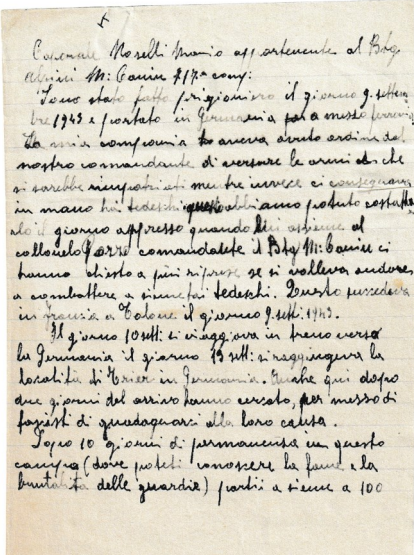 Caporale Noselli Mario appartenente al Btg
Alpini M. Cenin 217ª comp:
Sono stato fatto prigioniero il giorno 9. settem
bre 1943 e portato in Germania a messo ferrovia
La mia compania aveva avuto ordine dal
nostro comandante di versare le armi che
si sarebbe rimpatriati mentre invece ci consegnava
in mano hai tedeschi abbiamo potuto costatta
lo il giorno appresso quando lui assieme al
collonelo comandante il Btg M. Cenin ci
hanno chiesto a più riprese se si volleva andare
a combattere a sieme tai tedeschi. Questo succedeva
in francia a Tolone il giorno 9. sett. 1943.
Il giorno 10 sett: si viaggiava in treno verso
la Germania il giorno 19 sett: si raggiungeva la
località di Trier in Germania. Anche qui dopo
due giorni del arrivo hanno cercato, per messo di
fascisti di guadagnarsi alla loro causa.
Dopo 10 giorni di permanensa in questo
campo (dove poteti conoscere la fame e la
brutalita delle guardie) partii a sieme a 100